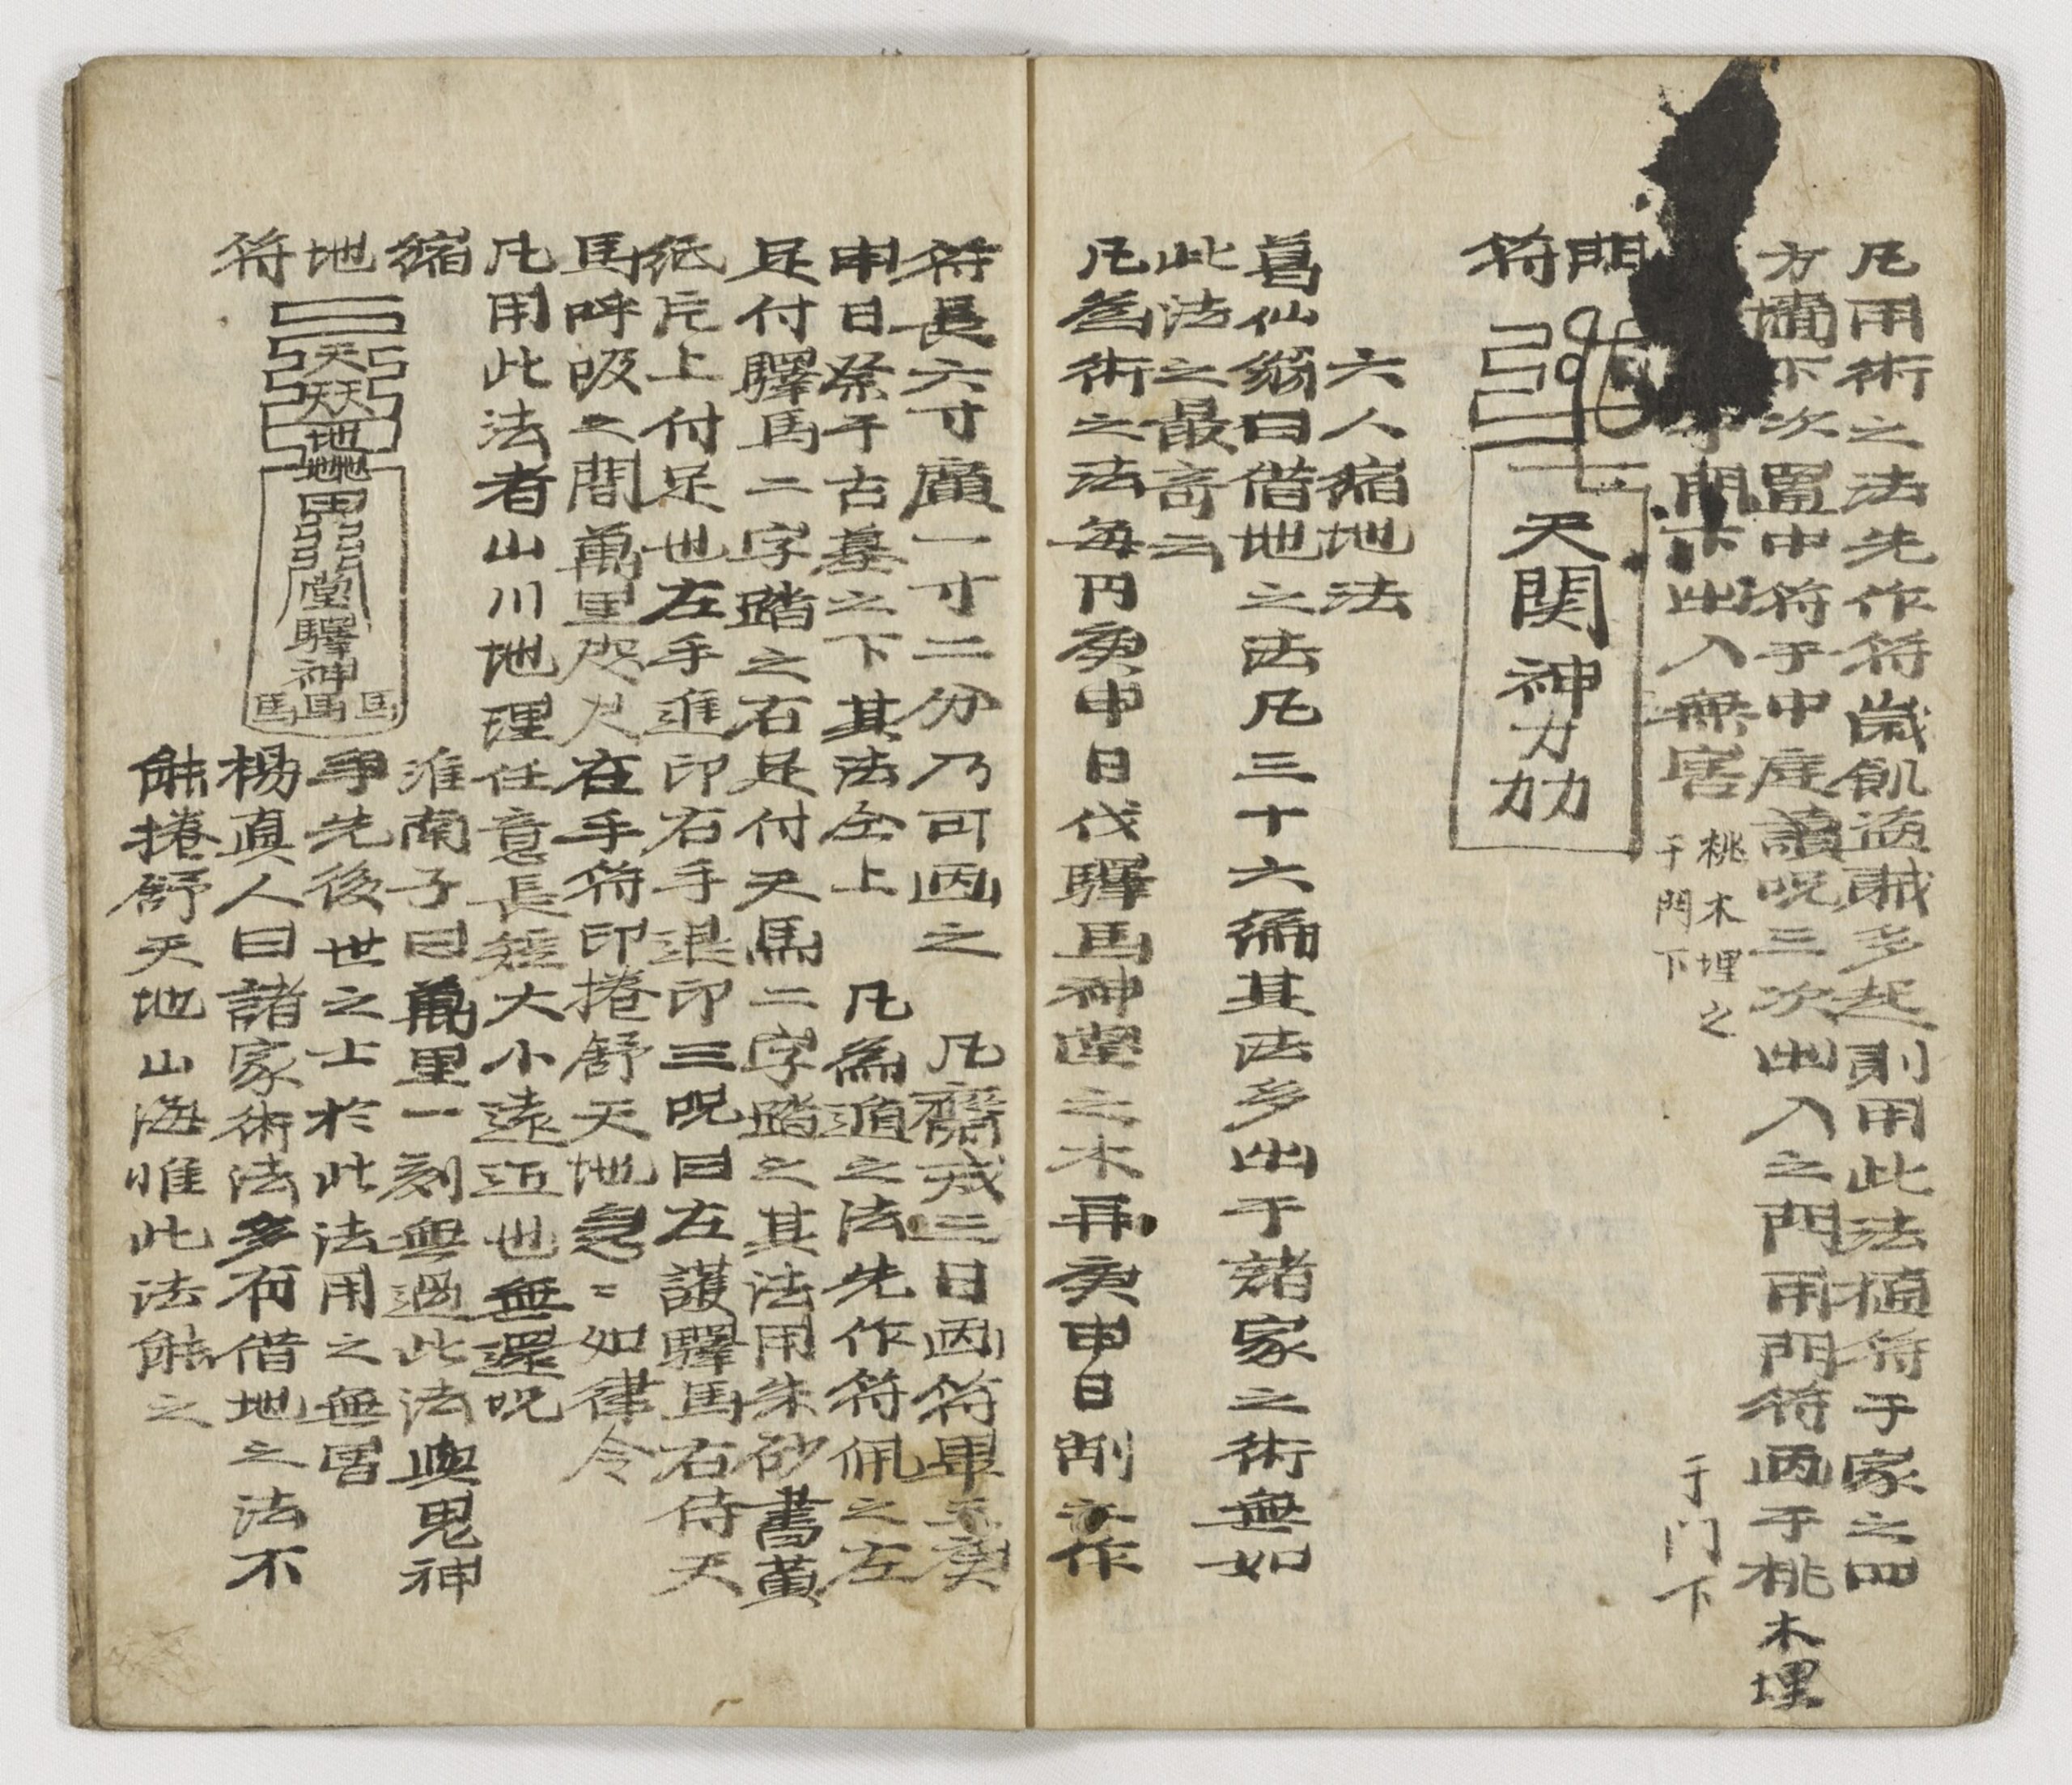 凡用術之法先作符歲飢盜賊多起則用此法植符于家之四
方墻下次置中符于中庭讀呪三次出入之門用門符画于桃木埋
于門下出入無害
桃木埋之
于門下
于门下
門
符
天関神力力力
六人縮地法
葛仙翁曰借地之法凡三十六編其法多出于諸家之術無如
此法之最奇云
凡爲術之法每円庚申日伐驛馬神堂之木再庚申日削之作
符長六寸廣一寸二分乃可画之 凡齋戒三日画符畢又庚
申日祭于古墓之下其法仝上 凡為遁之法先作符佩之左
足付驛馬二字踏之右足付天馬二字踏之其法用朱砂書黄
纸片上付足也左手進印右手退印三呪曰左護驛馬右侍天
馬呼吸之間萬里咫尺在手符印捲舒天地急〻如律令
凡用此法者山川地理任意長短大小遠近也無還呪
縮
地
符
天天天地地地
堂驛神
馬馬馬
淮南子曰萬里一刻無過此法與鬼神
爭先後世之士於此法用之無習
楊真人曰諸家術法多有借地之法不
能捲舒天地山海惟此法能之